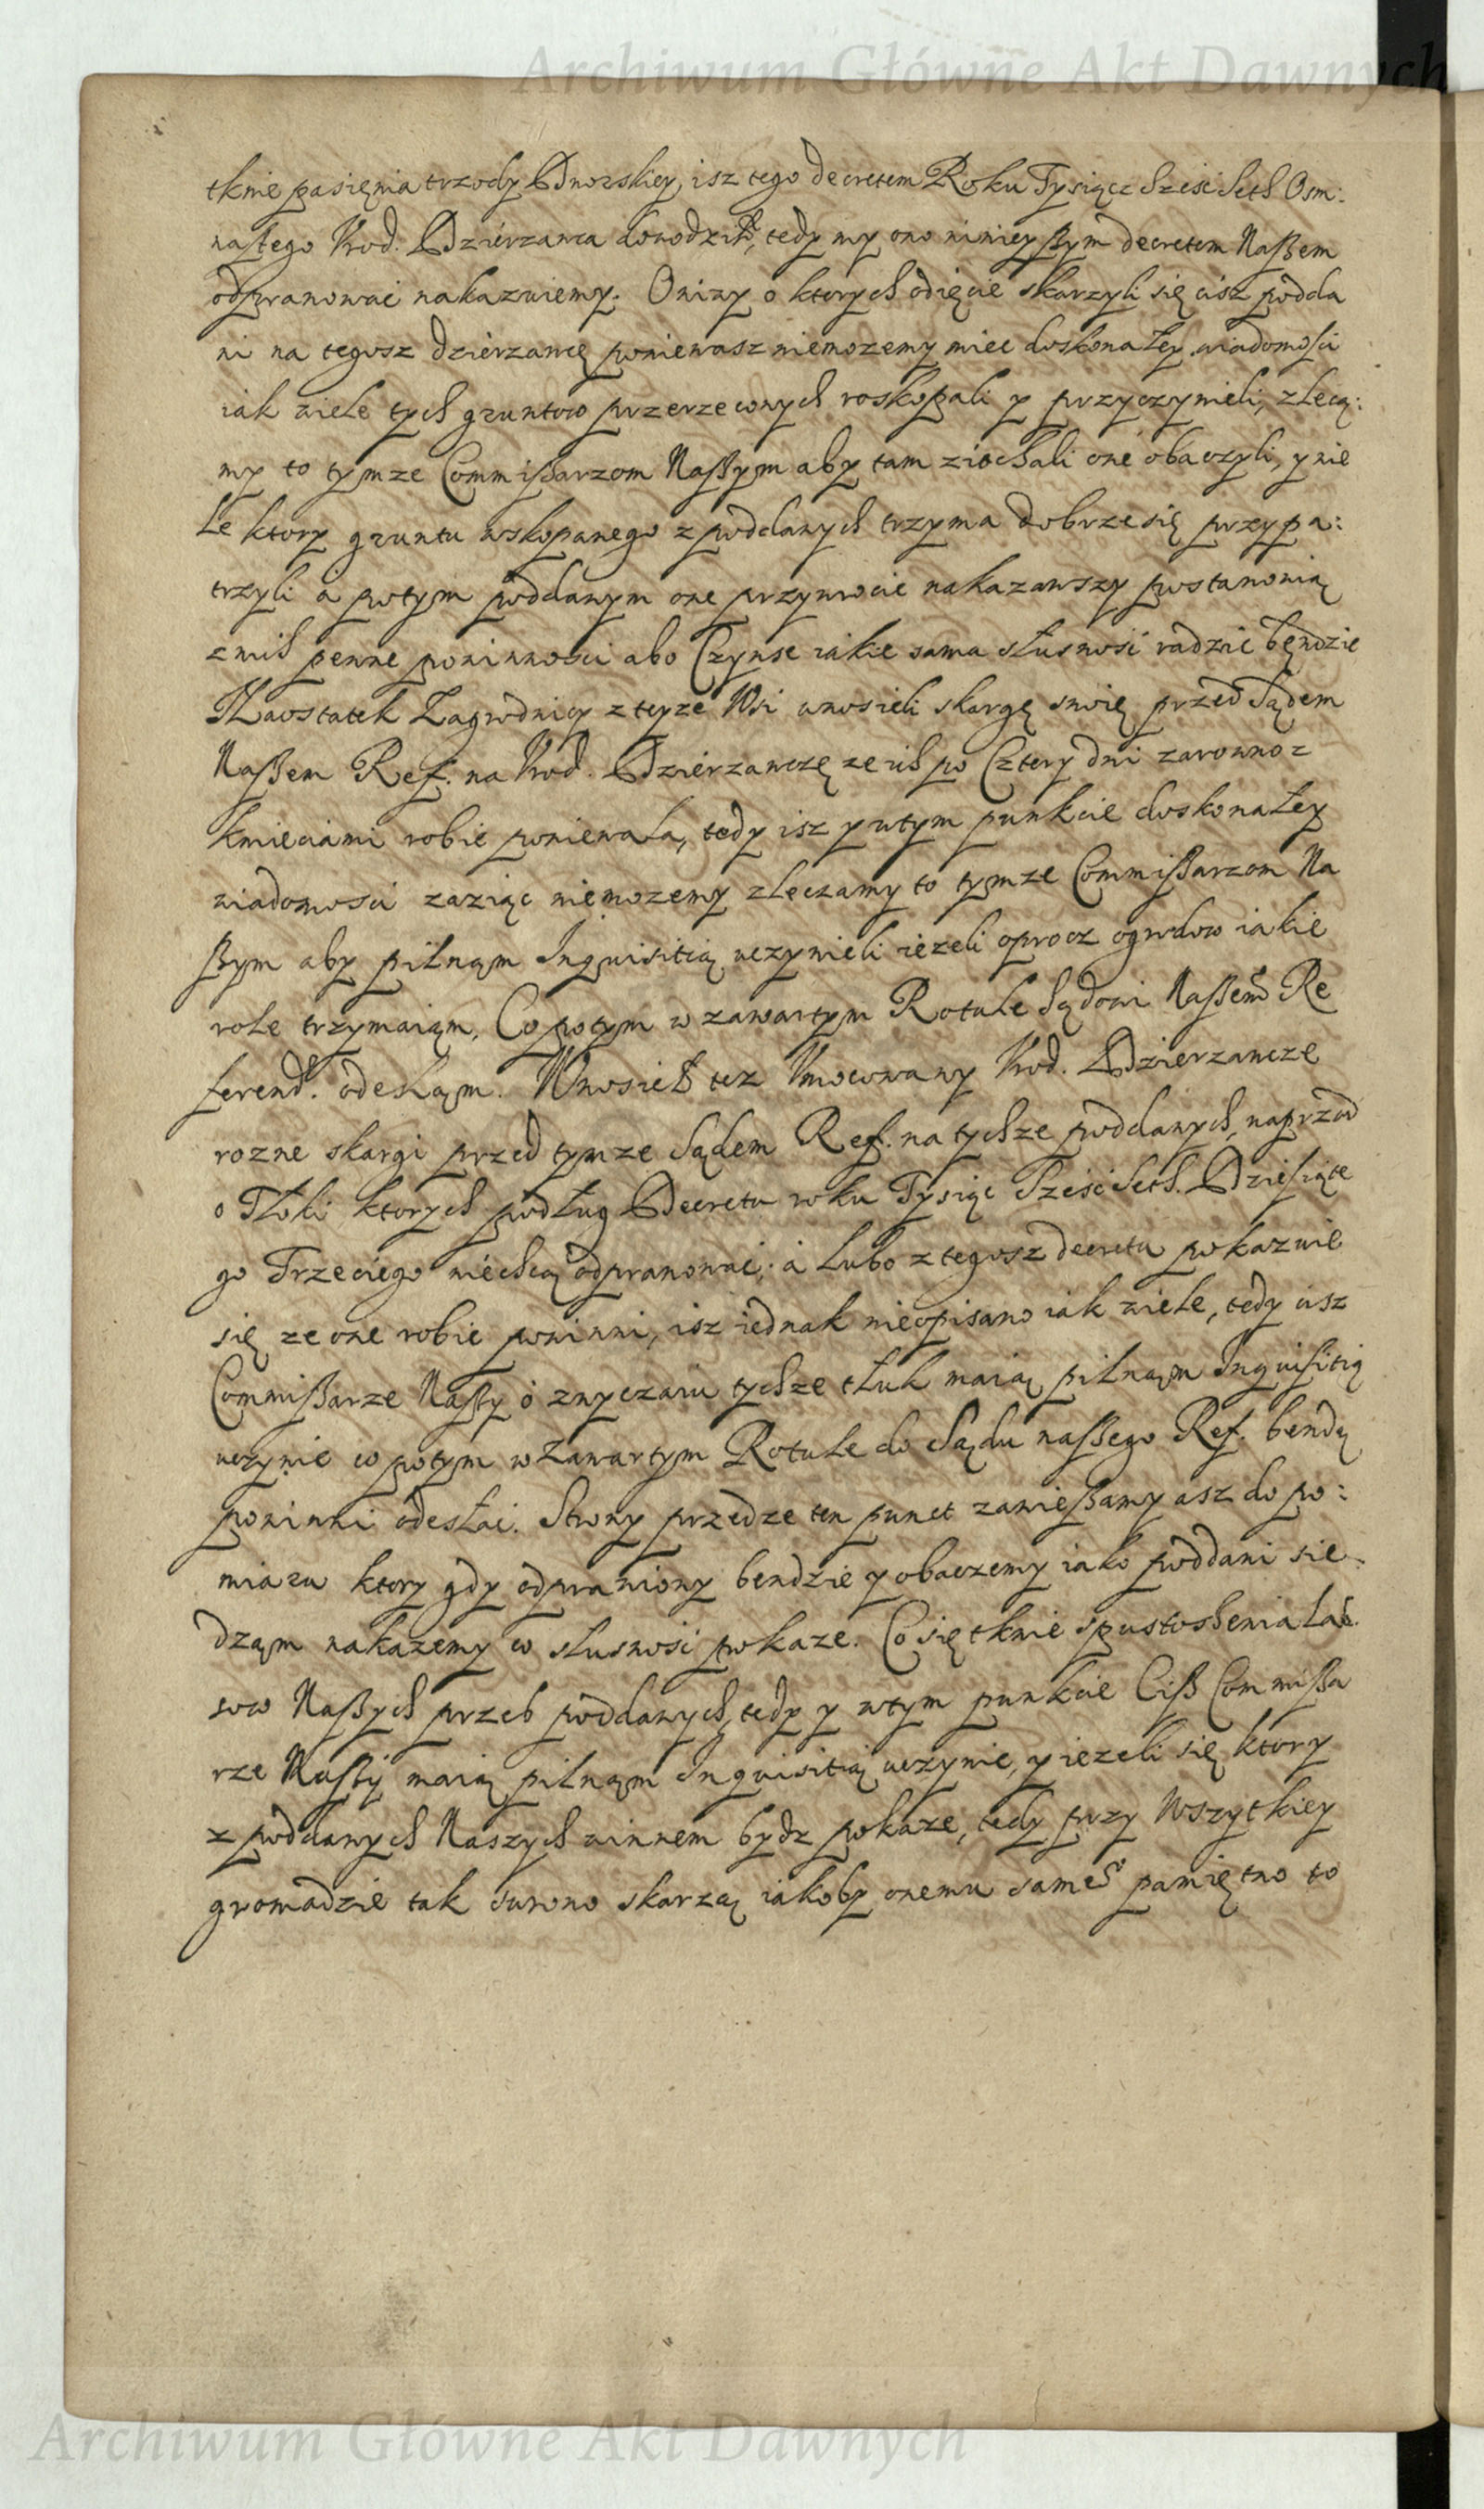 Archiwum Główne Akt Dawnych
tknie pasięnia trzody Dworskiey, isz tego decretem Roku Tysiącz Sześć Seth Osm:
nastego Urod. Dzierzawca dowodził, tedy my ono ninieyszym decretem Naszem
odprawować nakazuiemy. Oniwy o ktorych odięcie skarzyli się cisz podda
ni na tegosz dzierzawcę poniewasz niemozemy miec doskonałey wiadomości
iak wiele tych gruntow przerzeconych roskopali y przyczynieli, zlecą:
my to tymze Commissarzom Naszym aby tam ziechali one obaczyli, y wie
le ktory gruntu wskopanego z poddanych trzyma dobrze się przypa:
trzyli a potym poddanym one przywrocic nakazawszy postanowią
z nich pewne powinności abo Czynse iakie sama słusność radzić będzie
Naostatek Zagrodnicy z teyze Wsi wnosieli skargę swoię przed Sądem
Naszem Ref. na Urod. Dzierzawczę ze ich po Cztery dni zarowno z
kmieciami robić poniewala, tedy isz y w tym punkcie doskonałey
wiadomości zaziąc niemozemy zleczamy to tymze Commissarzom Na
szym aby pilnąm Inquisitią uczynieli iezeli oprocz ogrodow iakie
role trzymaiąm, Co potym w zawartym Rotule Sądowi Naszemu Re
ferend. odesląm. Wnosieł tez Umocowany Urod. Dzierzawcze
rozne skargi przed tymze Sądem Ref. na tychze poddanych, naprzod
o Tłoki ktorych podług Decretu roku Tysiąc Sześć Seth Dziesiąte
go Trzeciego niechcą odprawować; a lubo z tegosz decretu pokazuie
się ze one robić powinni, isz iednak nieopisano iak wiele, tedy cisz
Commissarze Naszy o zwyczaiu tychze tłuk maią pilnąm Inquisitią
uczynić co potym w zawartym Rotule do Sądu naszego Ref. bendą
powinni odesłać. Strony przedze ten punct zawieszamy asz do po:
miaru ktory gdy odprawiony bendzie y obaczemy iako poddani sie-
dząm nakazemy co słusność pokaze. Co się tknie spustoszenia La-
sow Naszych przes poddanych, tedy y w tym punkcie Cisz Commissa
rze Naszy maią pilnąm Inquisitią uczynić, y iezeli się ktory
z poddanych Naszych winnem bydz pokaze, tedy przy Wszytkiey
gromadzie tak surowo skarzą iakoby onemu sameo pamiętno to
Archiwum Główne Akt Dawnych